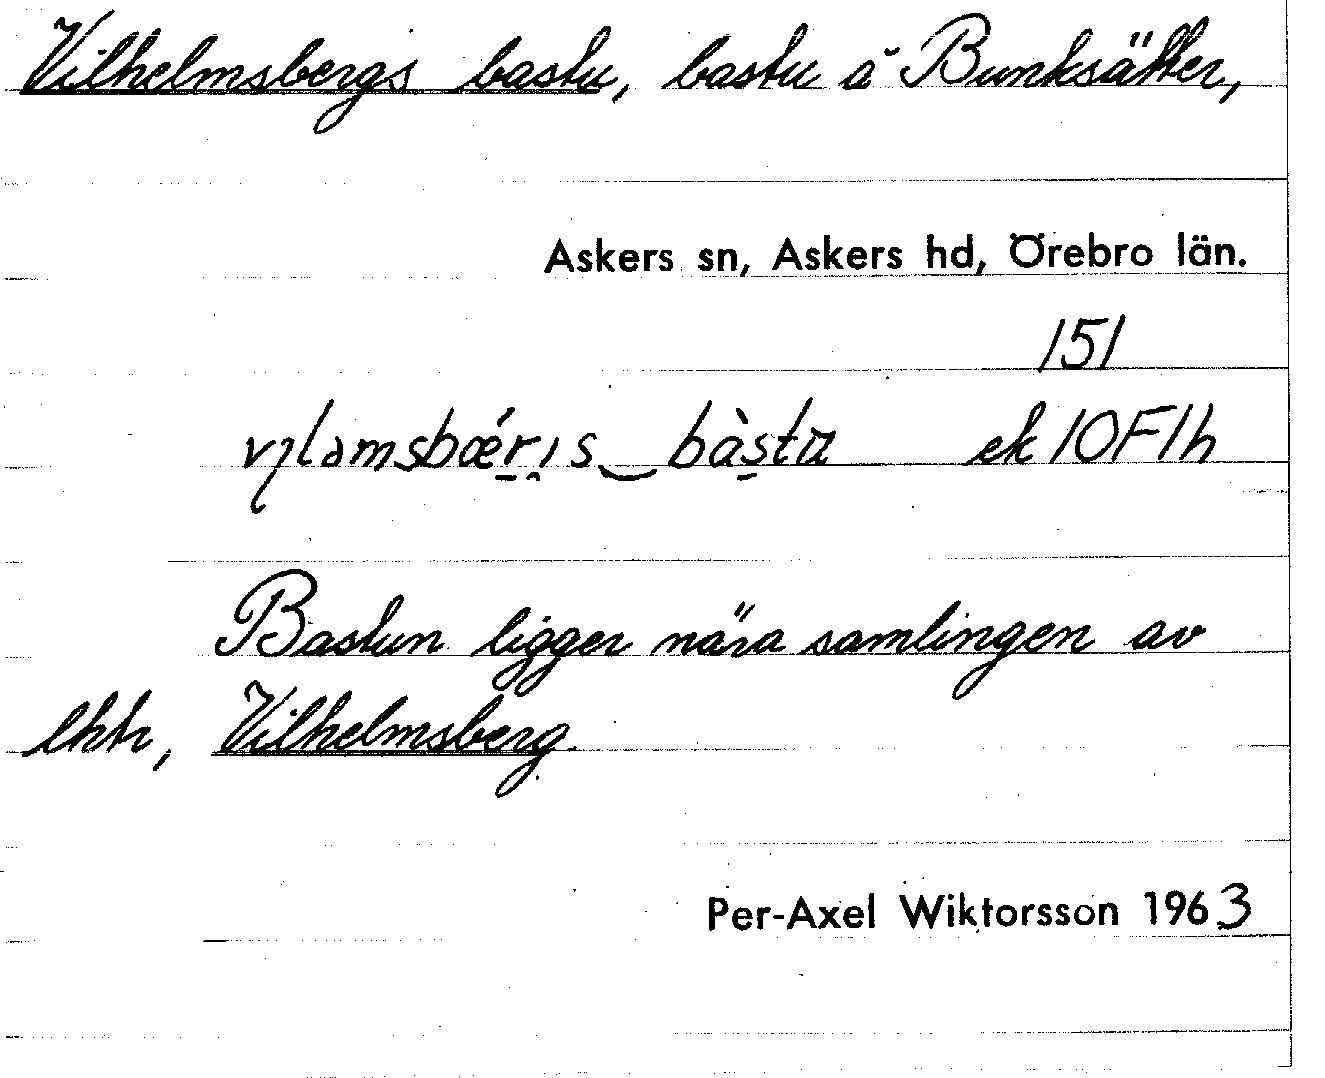 Vilhelmsbergs bastu, bastu å Bunksätter,
Askers sn, Askers hd, Örebro län.
151
ek 10F1h
Bastun ligger nära samlingen av
lhtr, Vilhelmsberg.
Per-Axel Wiktorsson 1963